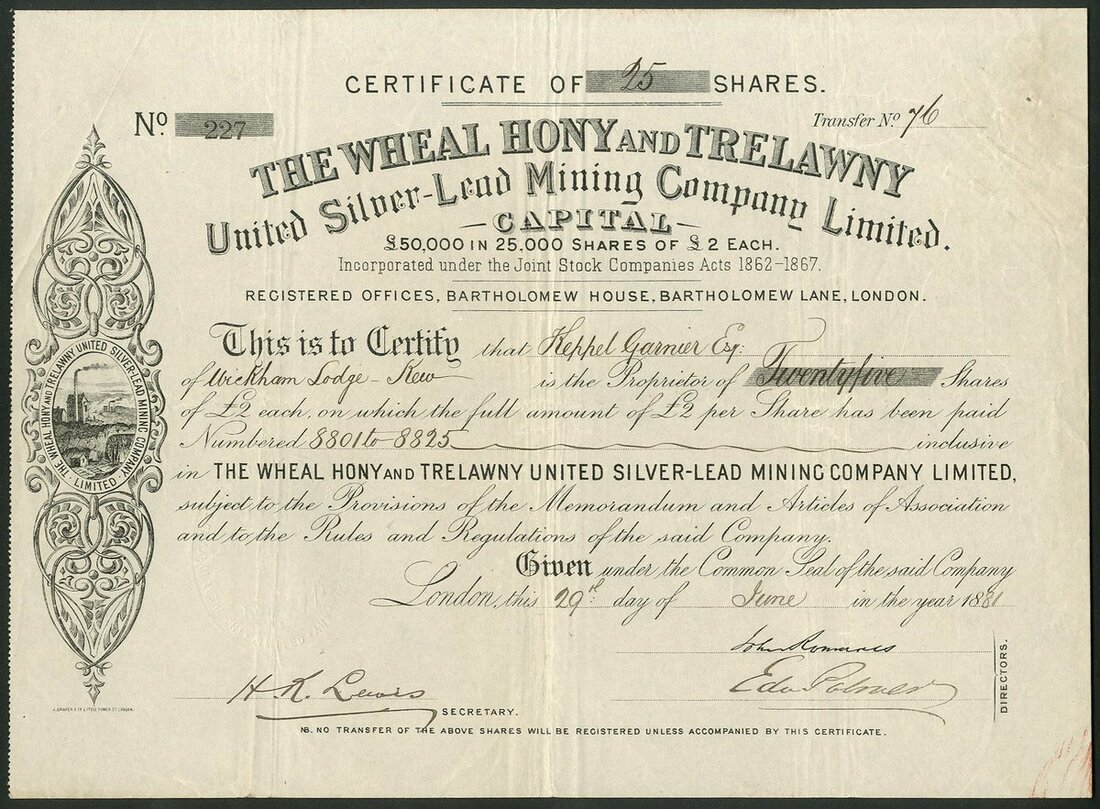 CERTIFICATE OF 25 SHARES.
No 227
Transfer No. 76
THE WHEAL HONY AND TRELAWNY
United Silver-Lead Mining Company Limited.
CAPITAL
£50,000 IN 25.000 SHARES OF £2 EACH.
Incorporated under the Joint Stock Companies Acts 1862-1867.
REGISTERED OFFICES, BARTHOLOMEW HOUSE, BARTHOLOMEW LANE, LONDON.
This is to Certify that Keppel Garnier Esq:
of Wickham Lodge - Kew is the Proprietor of Twentyfive Shares
of £2 each, on which the full amount of £2 per Share has been paid
Numbered 8801 to 8825 inclusive
in THE WHEAL HONY AND TRELAWNY UNITED SILVER-LEAD MINING COMPANY LIMITED,
subject to the Provisions of the Memorandum and Articles of Association
and to the Rules and Regulations of the said Company.
Given under the Common Seal of the said Company
London, this 29th day of June in the year 1881
THE WHEAL HONY AND TRELAWNY UNITED SILVER-LEAD MINING COMPANY LIMITED
John
H. K. Lewis
Edw Palmer
SECRETARY.
DIRECTORS.
NB. NO TRANSFER OF THE ABOVE SHARES WILL BE REGISTERED UNLESS ACCOMPANIED BY THIS CERTIFICATE.